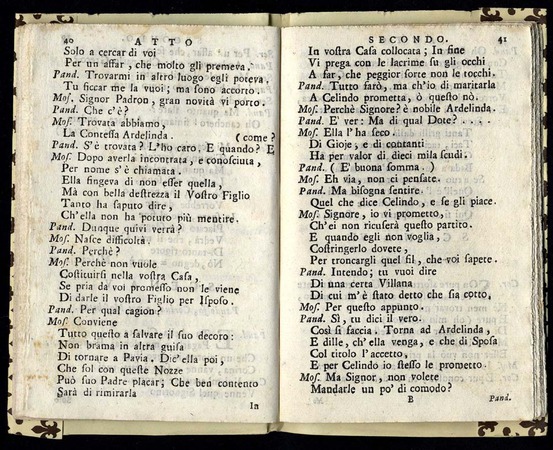 40 ATTO
Solo a cercar di voi
Per un affar, che molto gli premeva.
Pand. Trovarmi in altro luogo egli poteva.
Tu ficcar me la vuoi; ma sono accorto.
Mos. Signor Padron, gran novità vi porto.
Pand. Che c'è?
Mos. Trovata abbiamo,
La Contessa Ardelinda. ( come?
Pand. S'è trovata? L'ho caro. E quando? E
Mos. Dopo averla incontrata, e conosciuta,
Per nome s'è chiamata.
Ella fingeva di non esser quella,
Ma con bella destrezza il Vostro Figlio
Tanto ha saputo dire,
Ch'ella non ha potuto più mentire.
Pand. Dunque quivi verrà?
Mos. Nasce difficoltà.
Pand. Perchè?
Mos. Perchè non vuole
Costituirsi nella vostra Casa,
Se pria da voi promesso non le viene
Di darle il vostro Figlio per Isposo.
Pand. Per qual cagion?
Mos. Conviene
Tutto questo a salvare il suo decoro:
Non brama in altra guisa
Di tornare a Pavia. Dic'ella poi,
Che sol con queste Nozze
Può suo Padre placar; Che ben contento
Sarà di rimirarla
In
SECONDO. 41
In vostra Casa collocata; In fine
Vi prega con le lacrime su gli occhi
A far, che peggior sorte non le tocchi.
Pand. Tutto farò, ma ch'io di maritarla
A Celindo prometta, ò questo nò.
Mos. Perchè Signore? è nobile Ardelinda.
Pand. E' ver: Ma di qual Dote? . . . .
Mos. Ella l'ha seco.
Di Gioje, e di contanti
Ha per valor di dieci mila scudi.
Pand. ( E' buona somma. )
Mos. Eh via, non ci pensate.
Pand. Ma bisogna sentire.
Quel che dice Celindo, e se gli piace.
Mos. Signore, io vi prometto,
Ch'ei non ricuserà questo partito.
E quando egli non voglia,
Costringerlo dovete,
Per troncargli quel fil, che voi sapete.
Pand. Intendo; tu vuoi dire
Di una certa Villana
Di cui m'è stato detto che sia cotto.
Mos. Per questo appunto.
Pand. Sì, tu dici il vero.
Così si faccia. Torna ad Ardelinda,
E dille, ch'ella venga, e che di Sposa
Col titolo l'accetto,
E per Celindo io stesso le prometto.
Mos. Ma Signor, non volete
Mandarle un po' di comodo?
B Pand.